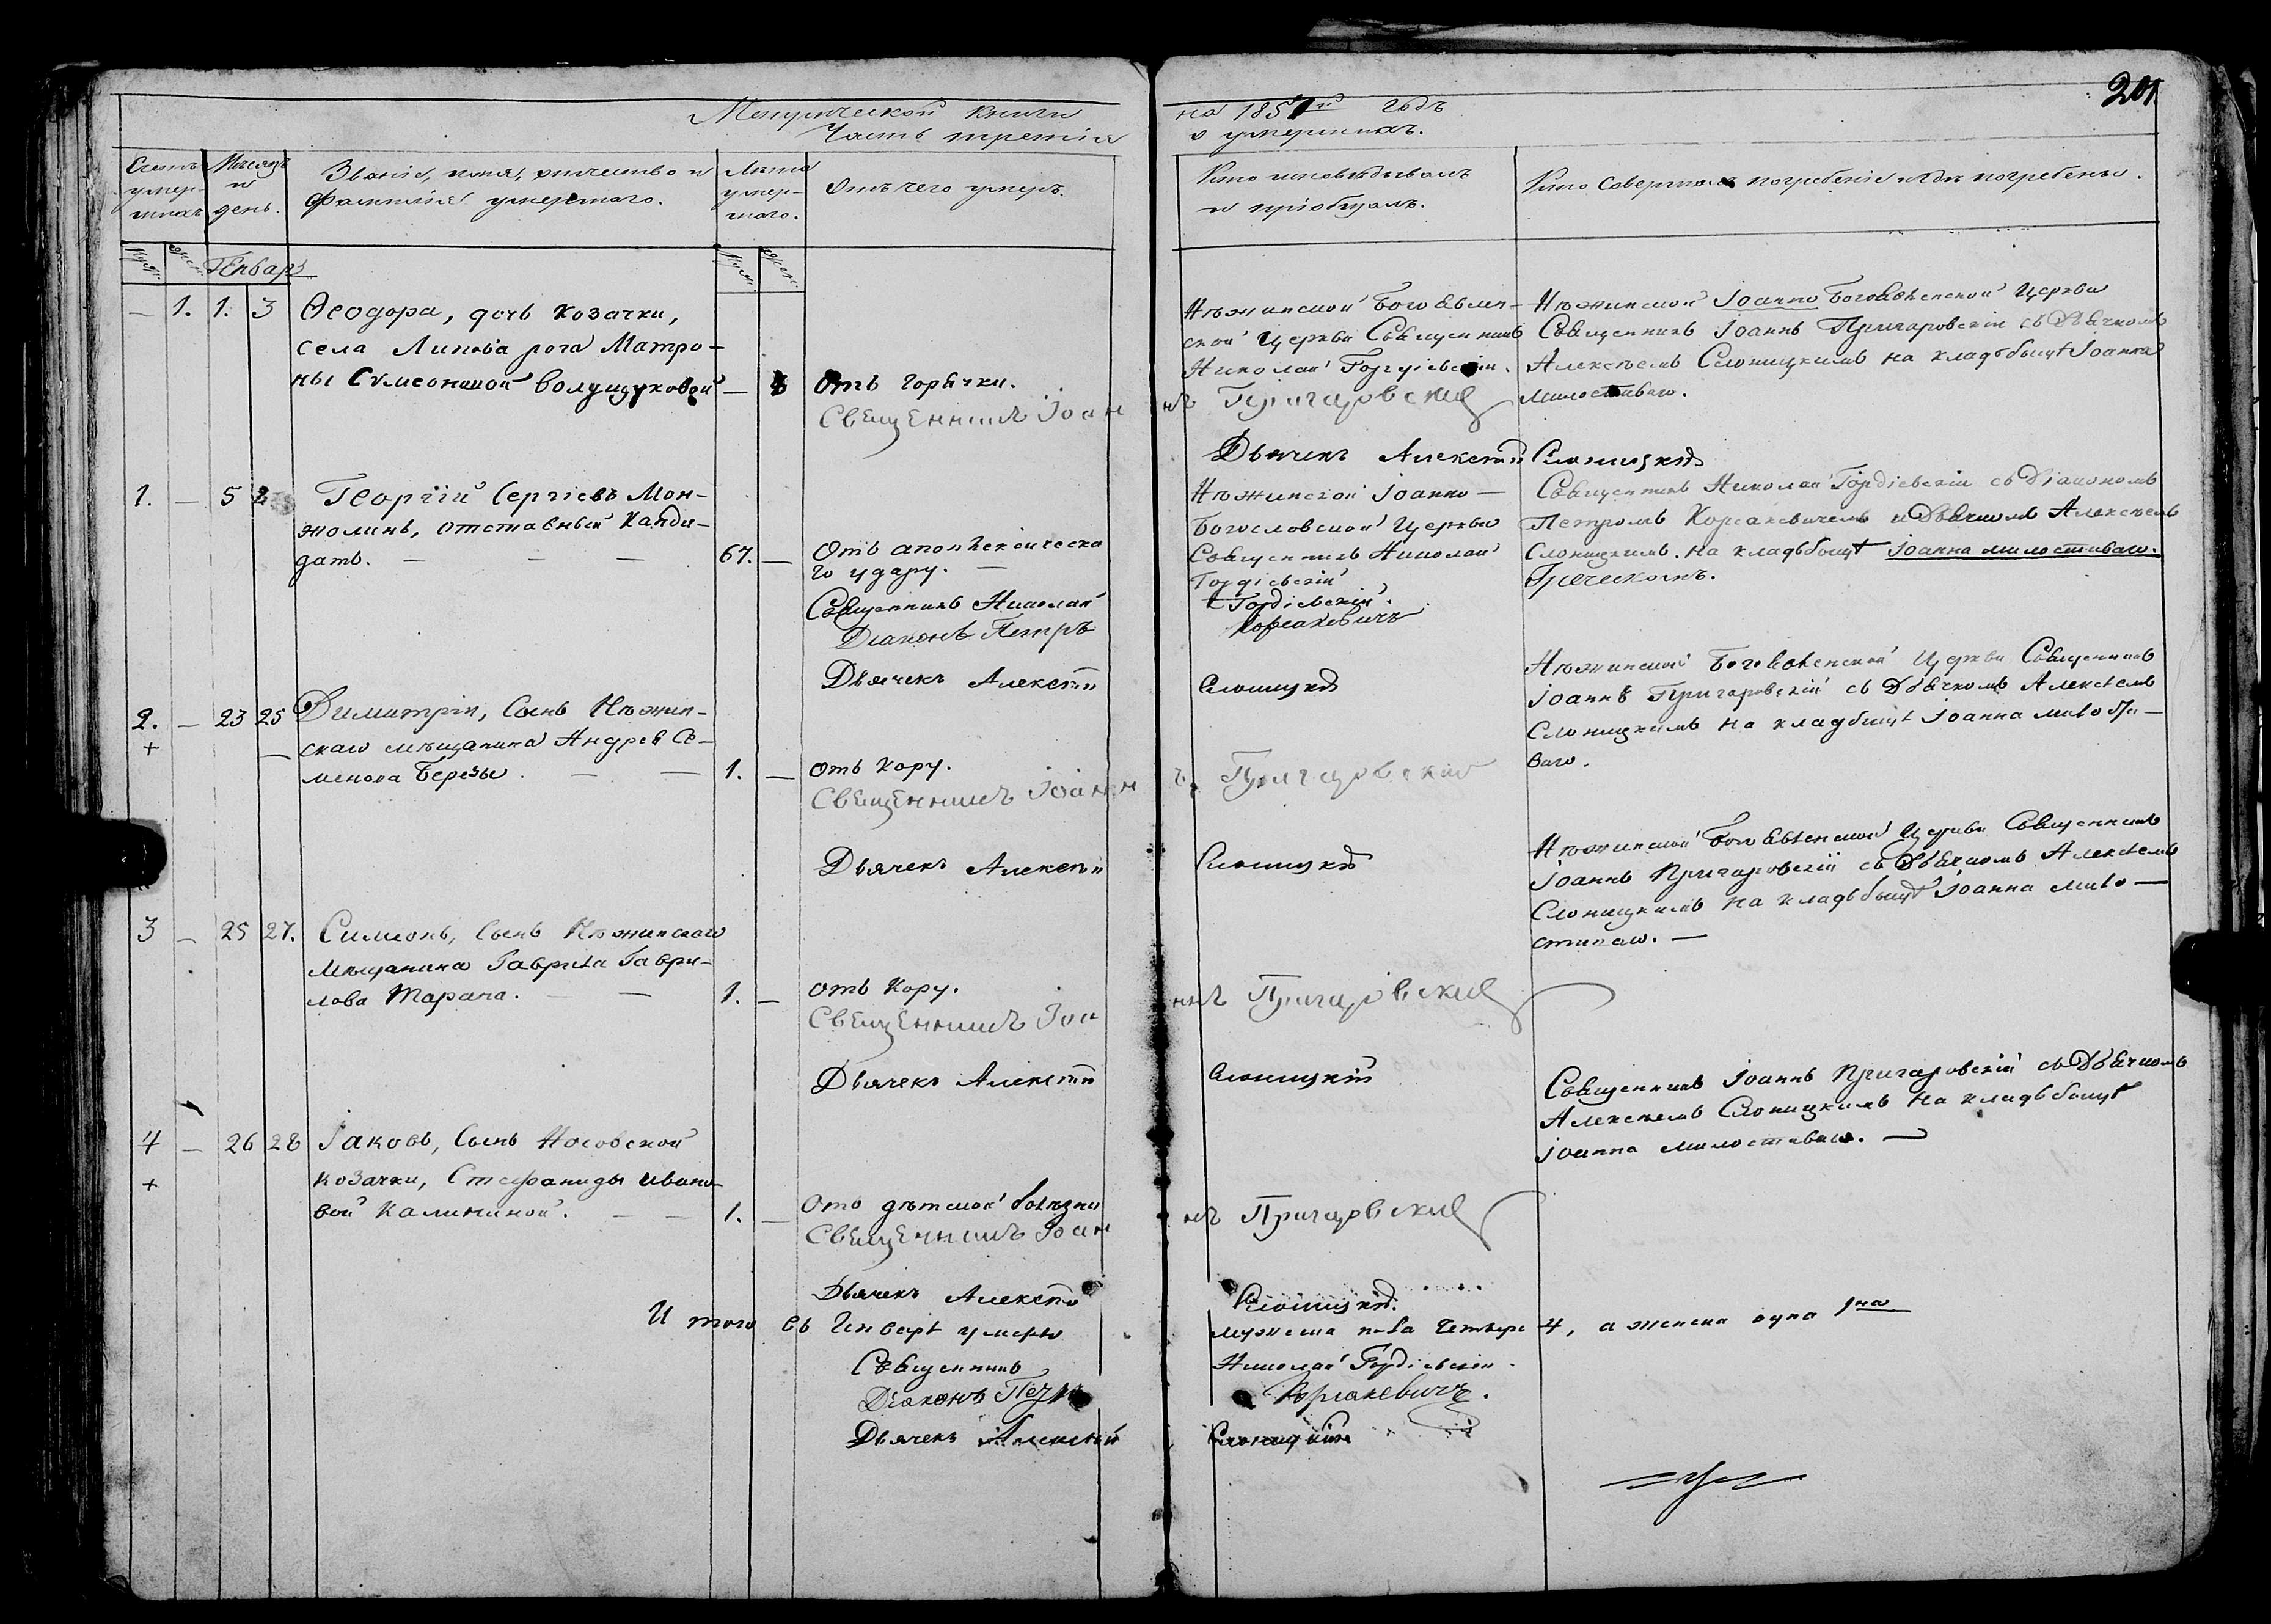 201
Метрической книги на 1851й годъ
Часть третія о умершихъ.
Счетъ умер-шихъ
Мѣсяцъ и день.
Званіе, имя, отчество и фамилія умершаго.
Лѣта умер-шаго.
Отъ чего умеръ.
Кто исповѣдывалъ и пріобщалъ.
Кто совершалъ погребеніе и гдѣ погребены.
Муж. Жен.
Генварь
Муж. Жен.
— 1. 1. 3
Ѳеодора, дочь козачки,
села Липова рога Матро-
ны Сѵмеоновой —
Отъ горячки.
Нѣжинской Богоявлен-
ской Церкви Священникъ
Николай Гордіевскій.
Нѣжинской Іоанно Богоявленской Церкви
Священникъ Іоаннъ Пригаровскій съ Дьячкомъ
Алексѣемъ Слоницкимъ на кладбищѣ Іоанна
милостиваго.
Священникъ Іоаннъ Пригаровскій
Дьячекъ Алексѣй Слоницкій
1. — 5
Георгій Сергіевъ Мон-
жолинъ, отставный Канди-
датъ. — — —
67. —
Отъ апоплексическа
го удару. —
Нѣжинской Іоанно —
Богословской Церкви
Священникъ Николай
Гордіевскій
Священникъ Николай Гордіевскій съ Діакономъ
Петромъ Корсакевичемъ и Дьячкомъ Алексѣемъ
Слоницкимъ. на кладьбищѣ Іоанна милостиваго.
Греческомъ.
Священникъ Николай Гордіевскій.
Діаконъ Петръ Корсакевичъ
Дьячекъ Алексѣй Слоницкій
2. — 23 25
+
Димитрій, Сынъ Нѣжин-
скаго мѣщанина Андрея Се-
менова Березы. — —
1. —
отъ кору.
Нѣжинской Богоявленской Церкви Священникъ
Іоаннъ Пригаровскій съ Дьячкомъ Алексѣемъ
Слоницкимъ на кладбищѣ Іоанна милости-
ваго.
Священникъ Іоаннъ Пригаровскій
Дьячекъ Алексѣй Слоницкій
3 — 25 27.
Симеонъ, Сынъ Нѣжинскаго
Мѣщанина Гаврила Гаври-
лова — —
1. —
отъ кору.
Нѣжинской Богоявленской Церкви Священникъ
Іоаннъ Пригаровскій съ Дьячкомъ Алексѣемъ
Слоницкимъ на кладьбищѣ Іоанна мило —
стиваго. —
Священникъ Іоаннъ Пригаровскій
Дьячекъ Алексѣй Слоницкій
4 — 26 28
+
Іаковъ, Сынъ Носовской
козачки, Стефаниды Ивано-
вой Калининой. — —
1. —
Отъ дѣтской болѣзни
Священникъ Іоаннъ Пригаровскій съ Дьячкомъ
Алексѣемъ Слоницкимъ на кладьбищѣ
Іоанна милостиваго. —
Священникъ Іоаннъ Пригаровскій
Дьячекъ Алексѣй Слоницкій.
И того въ Генварѣ умерло мужеска пола Четыре 4, а женска одна 1на
Священникъ Николай Гордіевскій.
Діаконъ Петръ Корсакевичъ.
Дьячекъ Алексѣй Слоницкій